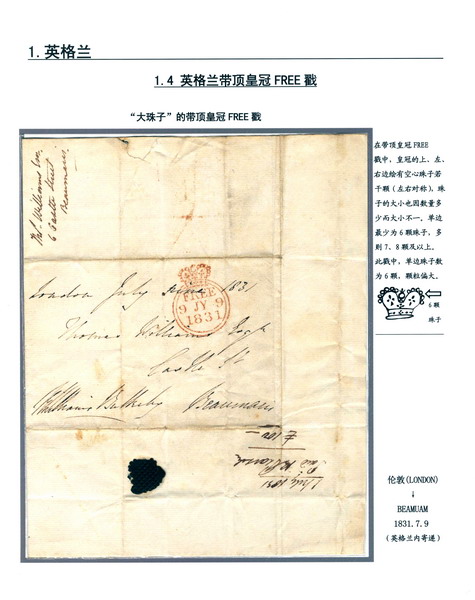 1.英格兰
1.4 英格兰带顶皇冠 FREE 戳
“大珠子”的带顶皇冠 FREE 戳
Thos Williams Esq
6 Castle Street
Beaumaris
在带顶皇冠 FREE
戳中，皇冠的上、左、
右边绘有空心珠子若
干颗（左右对称）。珠
子的大小也因数量多
少而大小不一。单边
最少为 6 颗珠子，多
则 7、8 颗及以上。
此戳中，单边珠子数
为 6 颗，颗粒偏大。
6 颗
珠子
FREE
9 JY 9
1831
London July 1831
Thomas Williams Esqr
Castle St
Beaumaris
£100
伦敦(LONDON)
↓
BEAMUAM
1831.7.9
（英格兰内寄递）